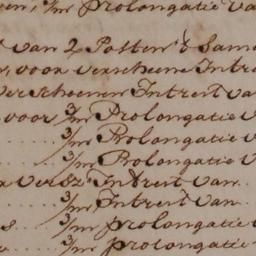 en, 3/m Prolongatie va
van 2 Posten t Sam
, voor verscheene Intre
verscheenen Intrest va
voor 3/m Prolongatie v
3/m Prolongatie v
3/m Prolongatie v
versz: Intrest van
3/m Intrest van
3/m prolongatie
3/m prolongatie